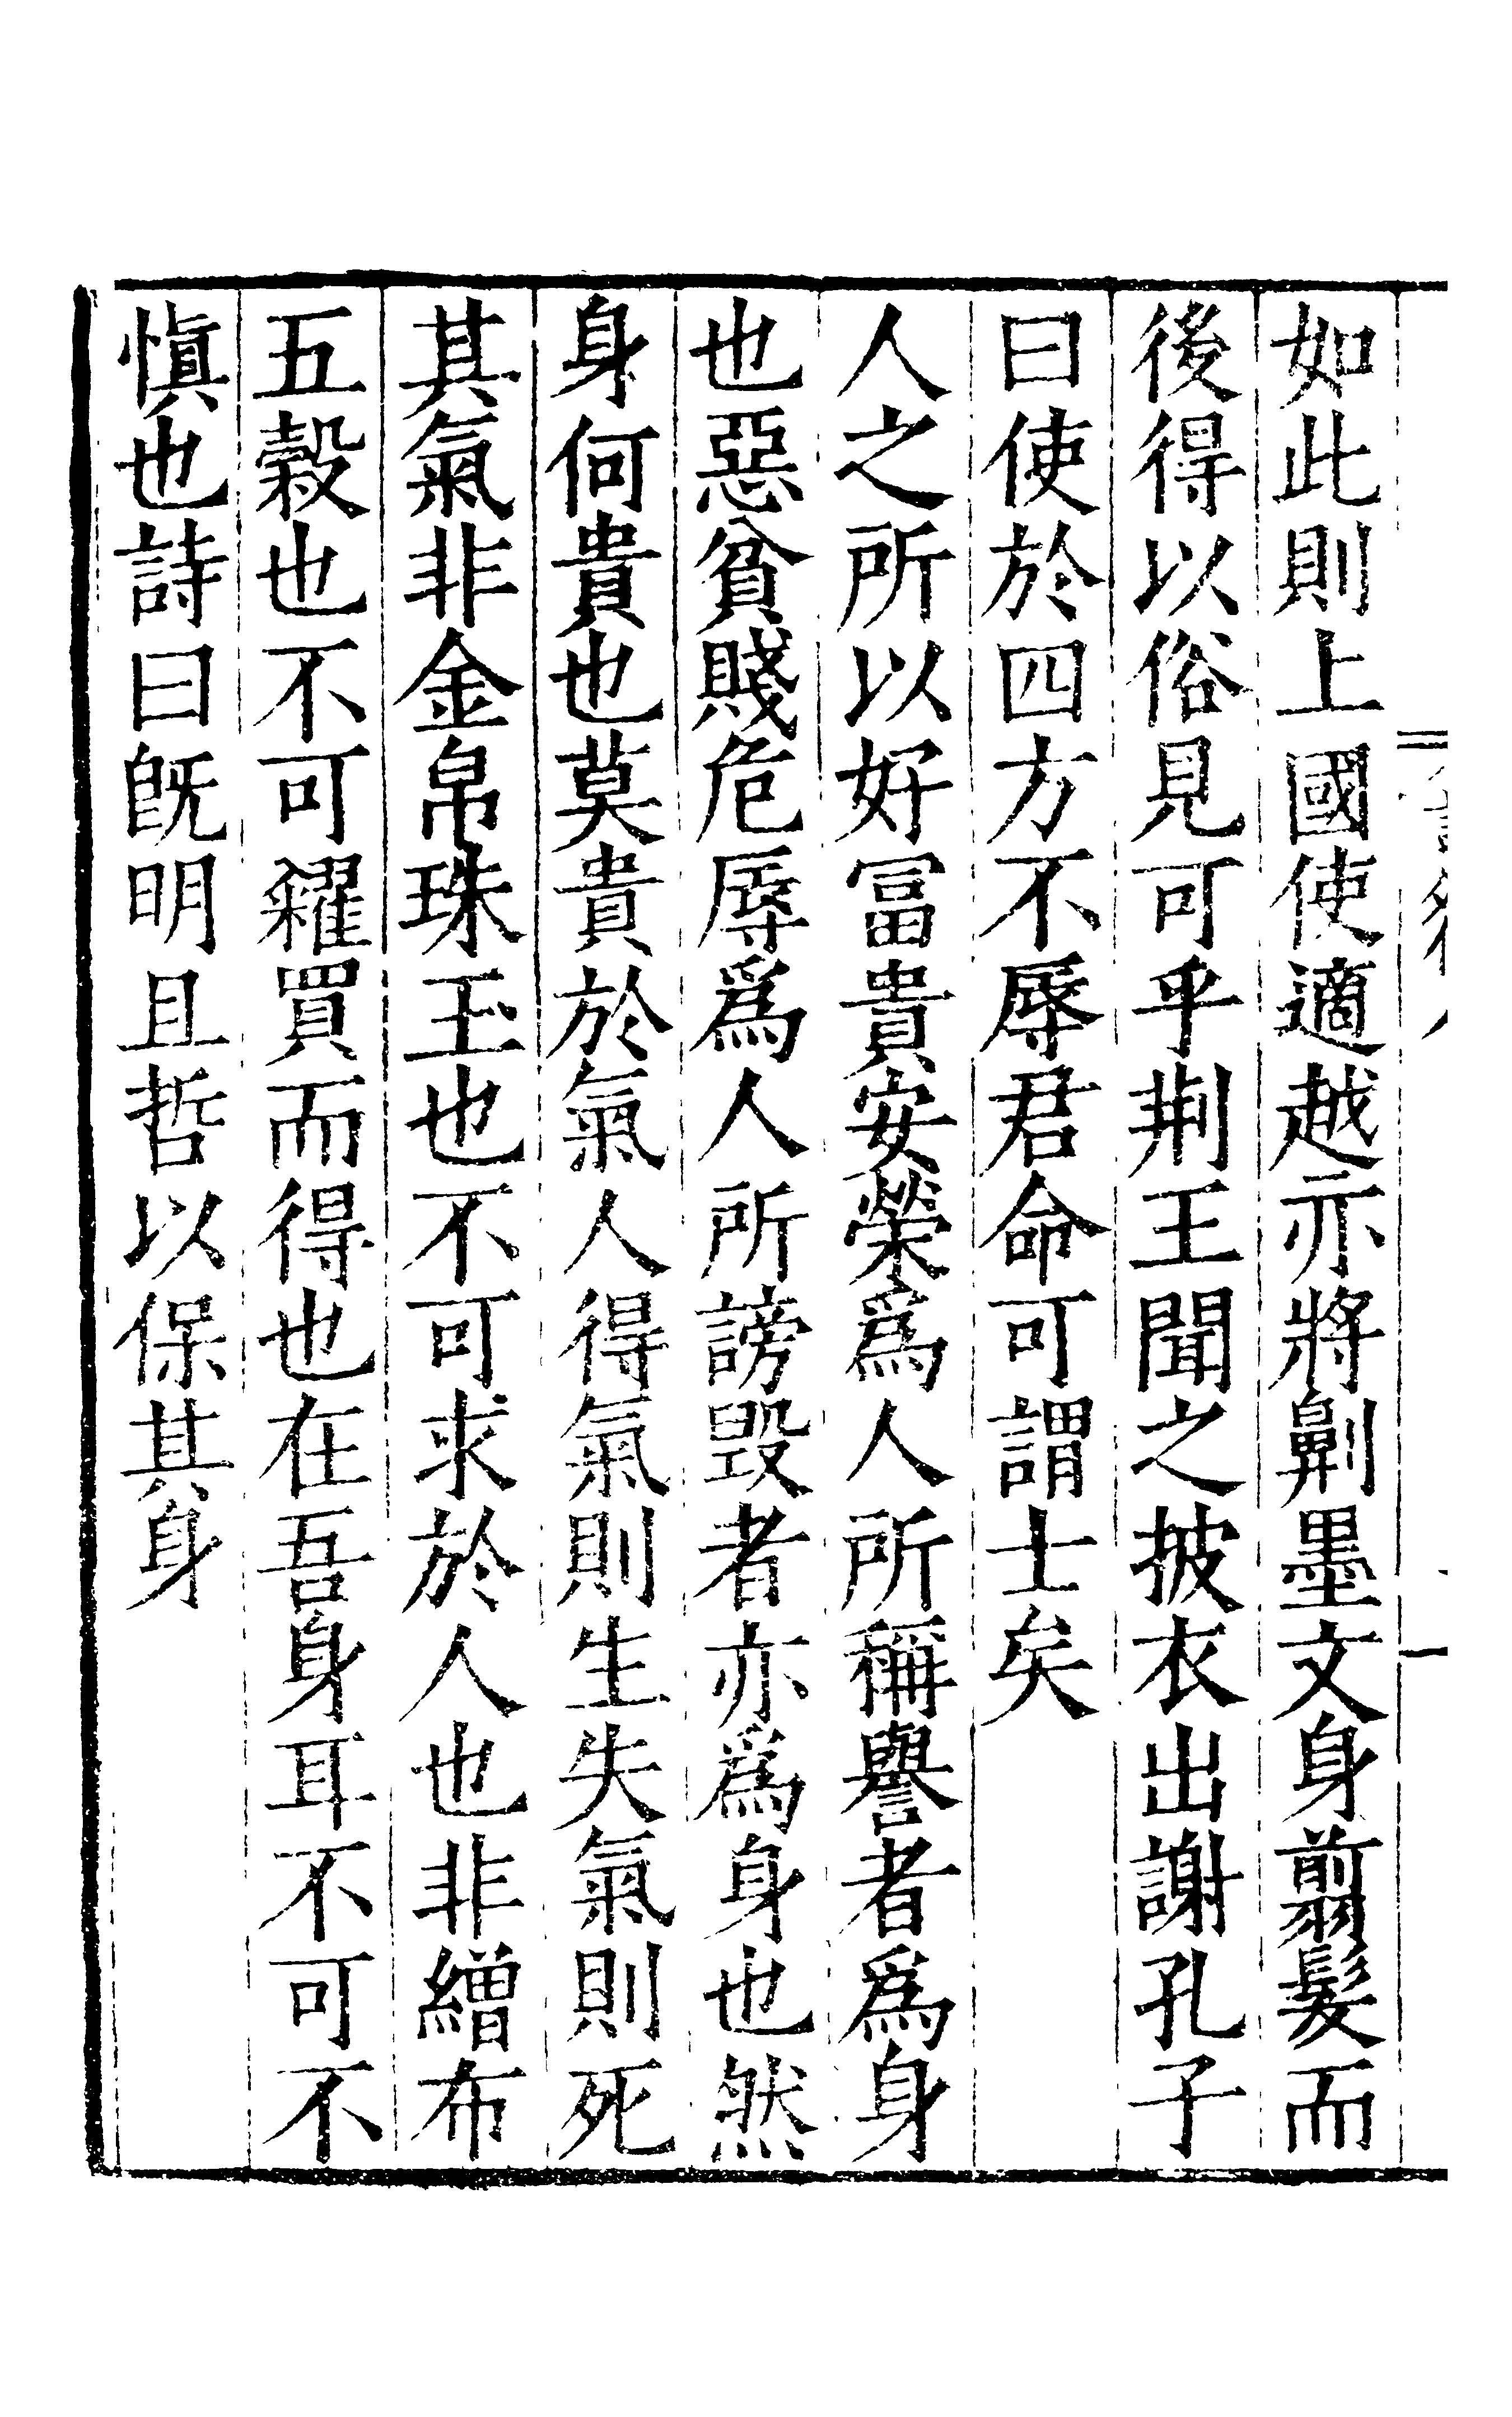 如此則上國使適越亦將劓墨文身翦髮而
後得以俗見可乎荆王聞之披衣出謝孔子
曰使於四方不辱君命可謂士矣
人之所以好冨貴安榮爲人所稱譽者爲身
也惡貧賤危辱爲人所謗毁者亦爲身也然
身何貴也莫貴於氣人得氣則生失氣則死
其氣非金帛珠玉也不可求於人也非繒布
五榖也不可糴買而得也在吾身耳不可不
愼也詩曰旣明且哲以保其身